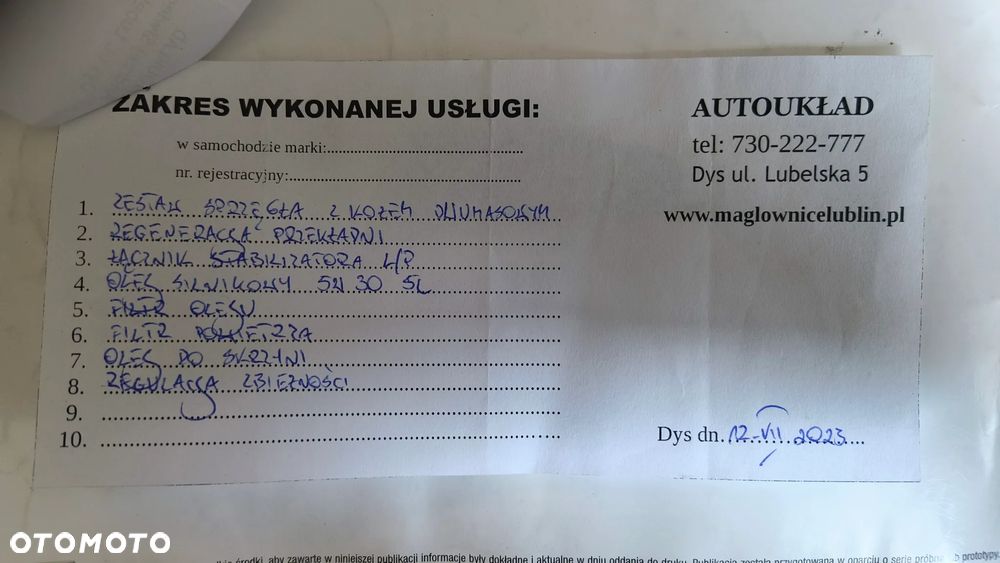 ZAKRES WYKONANEJ USŁUGI:
w samochodzie marki:
nr. rejestracyjny:
1. ZESTAW SPRZĘGŁA Z KOŁEM DWUMASOWYM
2. REGENERACJA PRZEKŁADNI
3. ŁĄCZNIK STABILIZATORA L/P
4. OLEJ SILNIKOWY 5W30 5L
5. FILTR OLEJU
6. FILTR POWIETRZA
7. OLEJ DO SKRZYNI
8. REGULACJA ZBIEŻNOŚCI
9.
10.
AUTOUKŁAD
tel: 730-222-777
Dys ul. Lubelska 5
www.maglownicelublin.pl
Dys dn. 12-VII 2023
OTOMOTO
środki, aby zawarte w niniejszej publikacji informacje były dokładne i aktualne w dniu oddania do druku. Publikacja została przygotowana w oparciu o serię
prototypy.